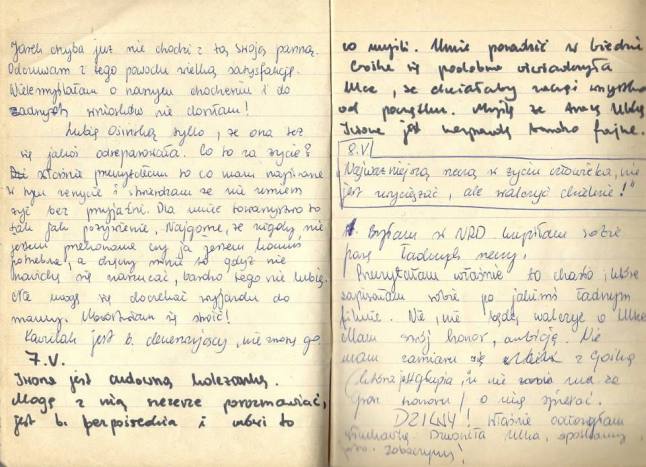 Jarek chyba już nie chodzi z tą swoją panną.
Odczuwam z tego powodu wielką satysfakcję.
Wiele myślałam o naszym chodzeniu i do
żadnych wniosków nie doszłam!
Lubię tylko, że ona też
się jakoś odseparowała. Co to za życie?
właśnie przeczytałam to co mam napisane
w tym zeszycie i stwierdzam że nie umiem
żyć bez przyjaźni. Dla mnie towarzystwo to
tak jak pożywienie. Najgorsze, że nigdy nie
jestem przekonana czy ja jestem komuś
potrzebna, a chcę się gdyż nie
nawidzę się narzucać, bardzo tego nie lubię.
Nie mogę się doczekać wyjazdu do
mamy.
jest b. denerwujący, nie znoszę go.
7.V.
Iwona jest cudowną koleżanką.
Mogę z nią szczerze porozmawiać,
jest b. bezpośrednia i mówi to
co myśli. Umie poradzić w biedzie
się podobno
Ulce, że chciałaby zacząć wszystko
od początku. Myślę że Ulka,
Iwona jest naprawdę bardzo fajna.
8.V
"Najważniejszą rzeczą w życiu człowieka, nie
jest zwyciężać, ale walczyć dzielnie!"
Byłam w NRD kupiłam sobie
parę ładnych rzeczy.
Przeczytałam właśnie to hasło, które
zapisałam sobie po jakimś ładnym
filmie. Nie, nie będę walczyć o Ulkę
Mam swój honor, ambicję. Nie
mam zamiaru się z Gośką
(która jest głupia i nie ma za
grosz honoru) o nią spierać.
DZILNY! właśnie odłożyłam
słuchawkę. Dzwoniła Ulka,
zobaczymy!